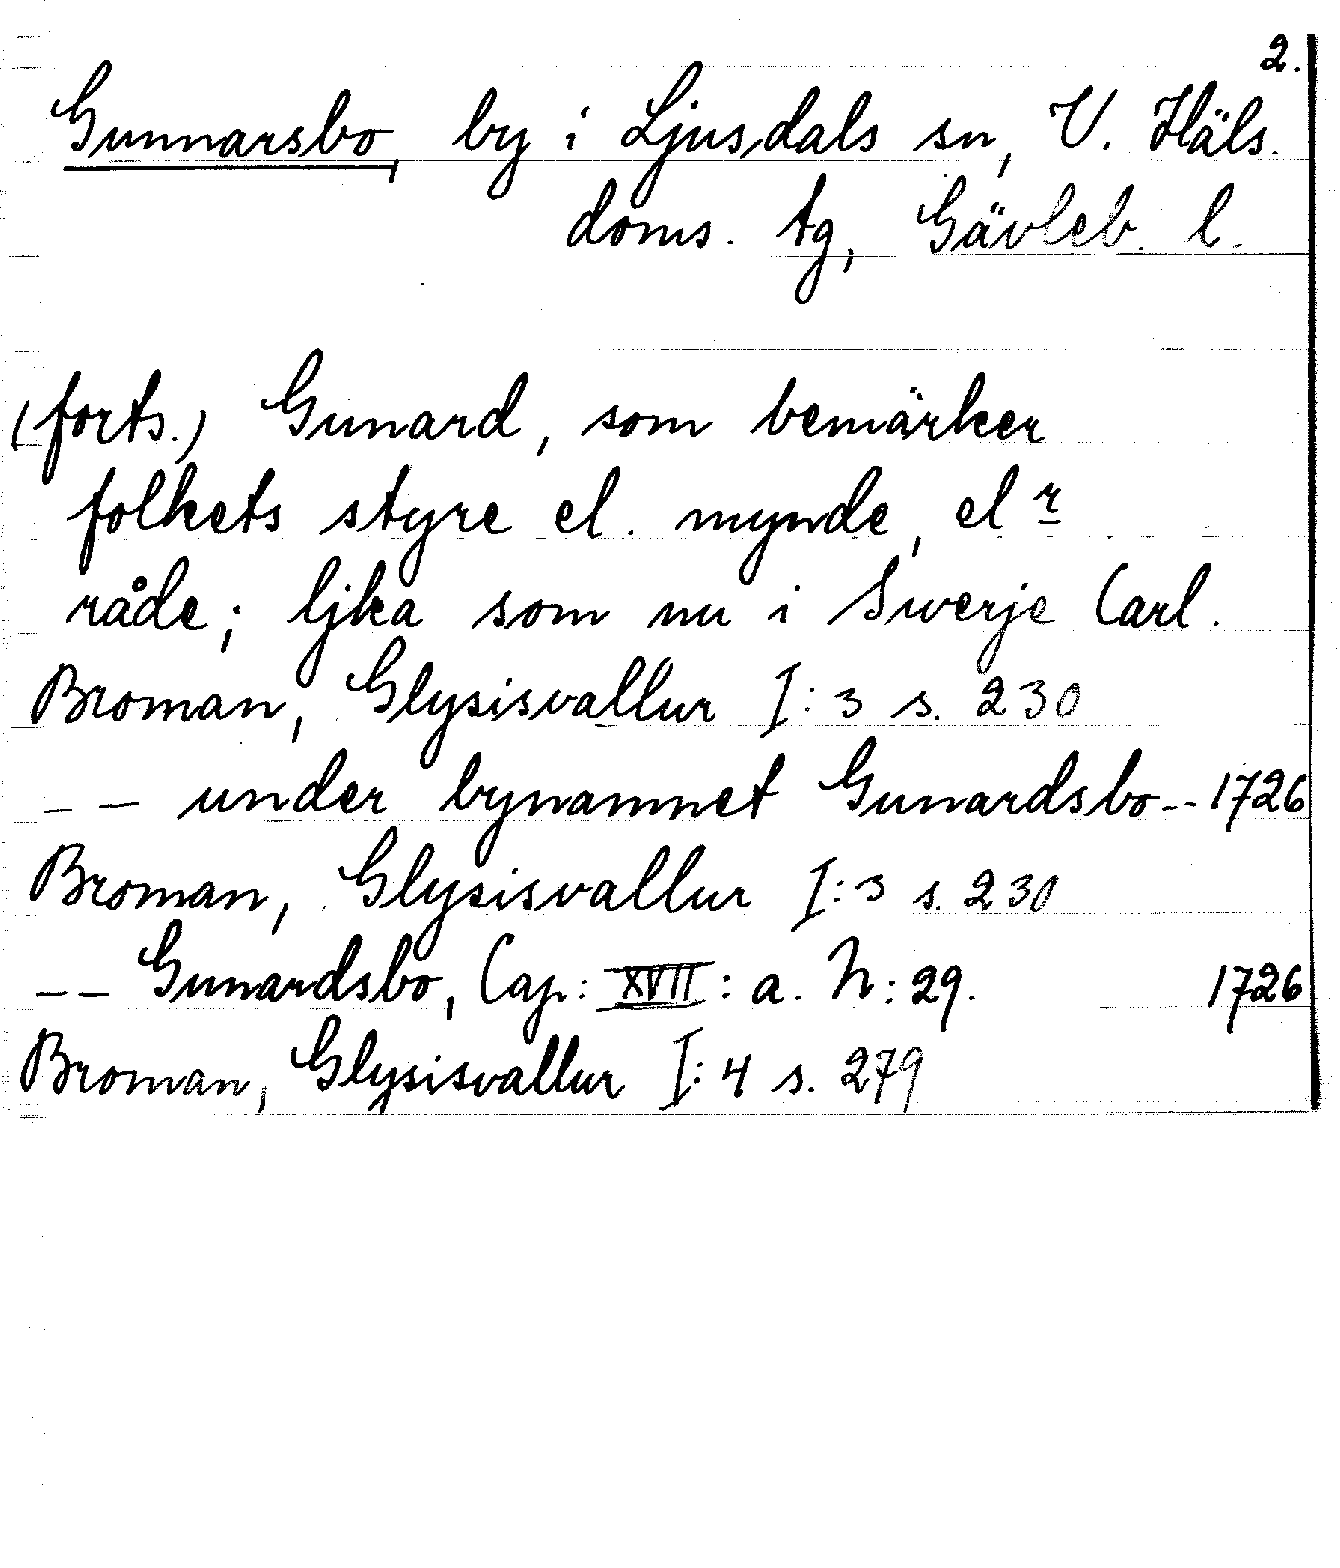 2.
Gunnarsbo, by i Ljusdals sn, V. Häls.
doms. tg, Gävleb. l.
(forts.) Gunard, som bemärker
folkets styre el. mynde, elr
råde; ljka som nu i Swerje Carl.
Broman, Glysisvallur I:3 s. 230
-- under bynamnet Gunardsbo -- 1726
Broman, Glysisvallur I:3 s. 230
-- Gunardsbo, Cap: XVII: a. N: 29. 1726
Broman, Glysisvallur I:4 s. 279